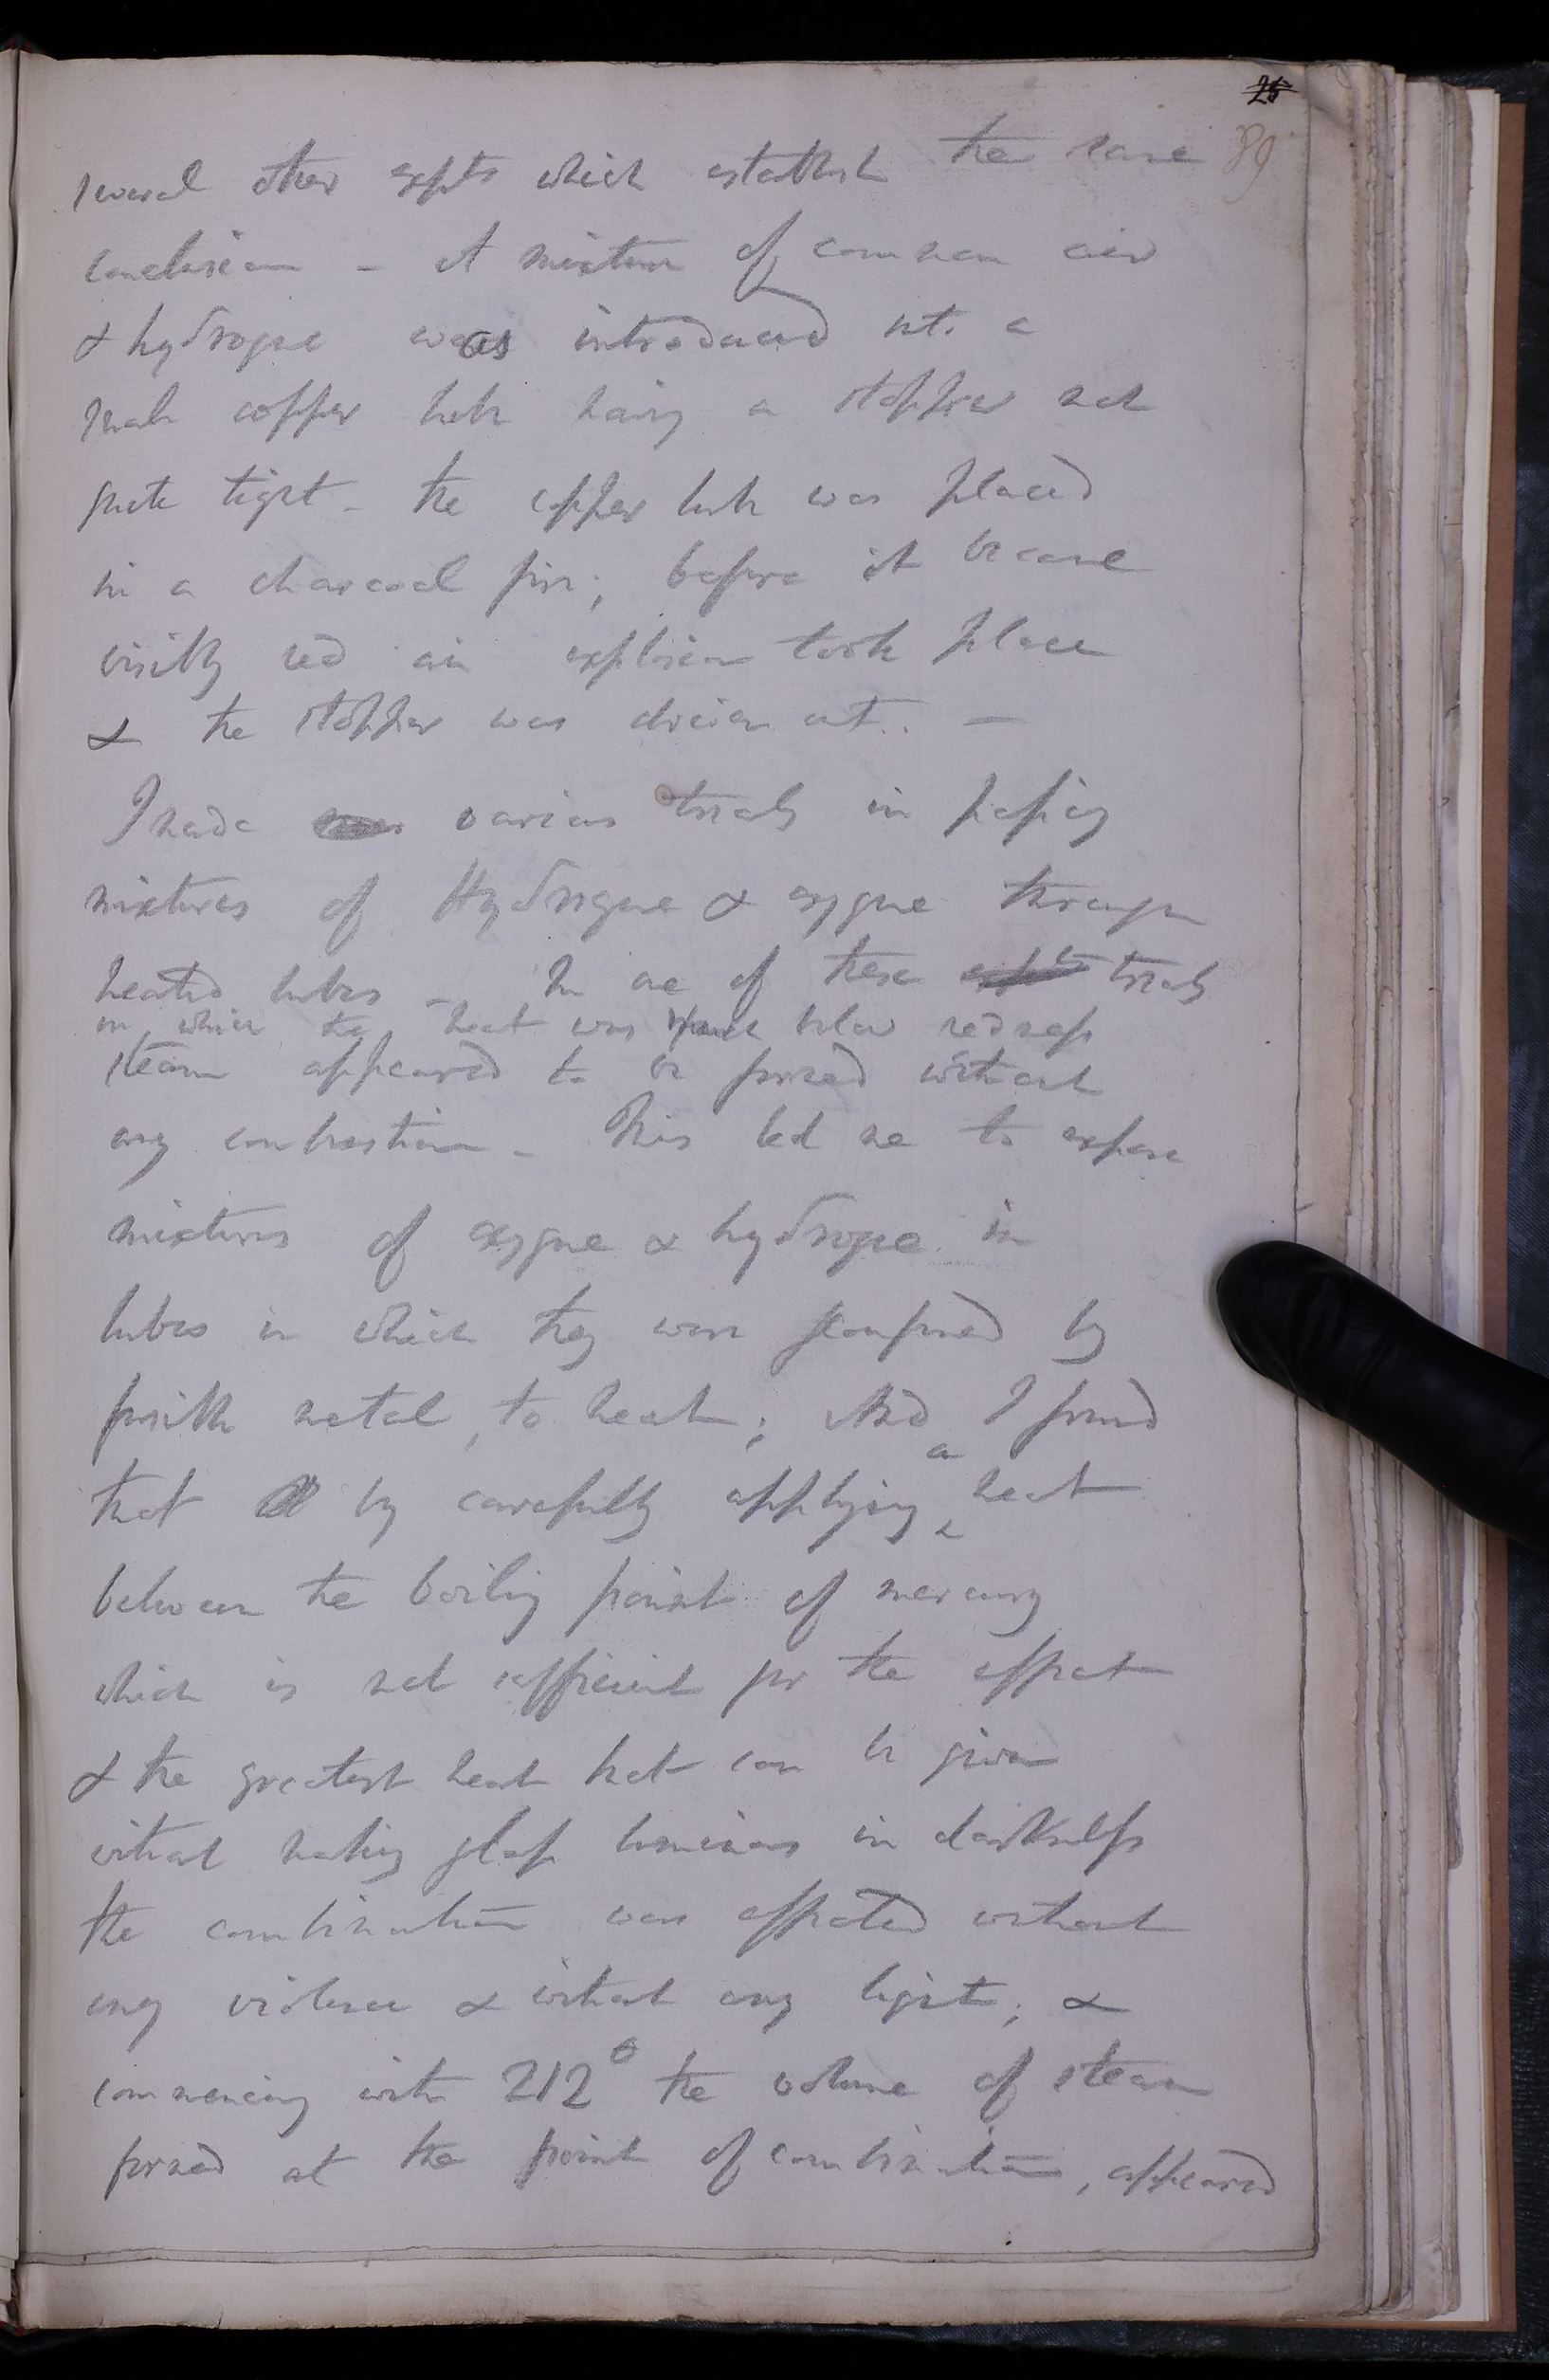 25
89
several other expts which establish the same
conclusion - A mixture of common air
& hydrogene was introduced into a
small copper tube having a stopper not
quite tight - the copper tube was placed
in a charcoal fire; before it became
visibly red an explosion took place
& the stopper was driven out. . —
I made various trials in passing
mixtures of Hydrogene & oxygene through
heated tubes - In one of these expts trials
in which the heat was much below redness
steam appeared to be formed without
any combustion - This led me to expose
mixtures of oxygene & hydrogene in
tubes in which they were confined by
fusible metal, to heat; And I found
that by carefully applying a heat
between the boiling point of mercury
which is not sufficient for the effect
& the greatest heat that can be given
without making glass luminous in darkness
the combination was effected without
any violence & without any light; &
commencing with 212° the volume of steam
formed at the point of combination, appeared